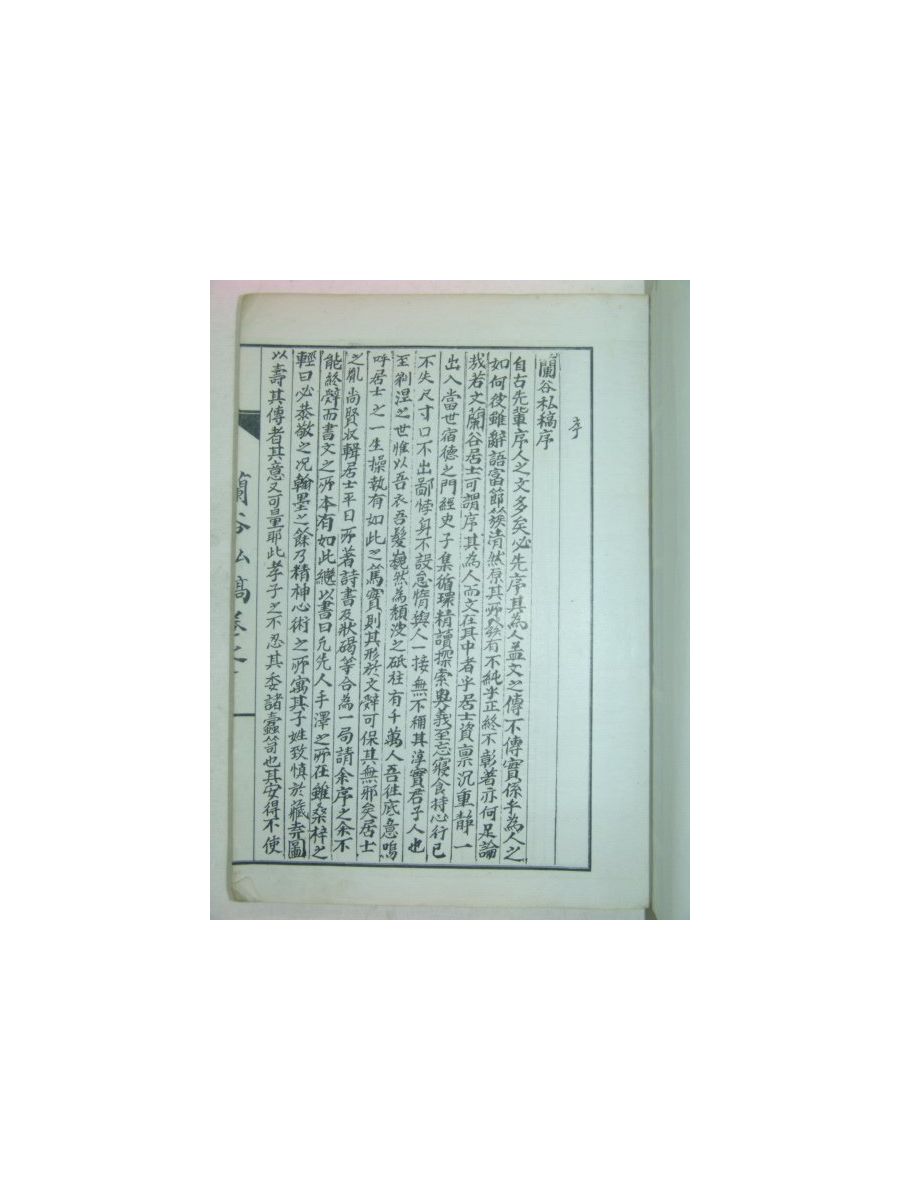 序
蘭谷私稿序
自古先輩序人之文多矣必先序其為人盖文之傳不傳實係乎為人之
如何彼雖辭語富節簇清然原其所發有不純乎正終不彰著亦何足論
哉若文蘭谷居士可謂序其為人而文在其中者乎居士資稟沉重静一
出入當世宿德之門經史子集循環精讀探索奧義至忘寢食持心行已
不失尺寸口不出鄙悖身不設怠惰與人一接無不稱其淳實君子人也
至剃涅之世惟以吾衣吾髮巍然為頽波之砥柱有千萬人吾往底意嗚
呼居士之一生操執有如此之篤實則其形於文辭可保其無邪矣居士
之胤尚賢収輯居士平日所著詩書及狀碣等合為一局請余序之余不
能終辭而書文之所本有如此繼以書曰凡先人手澤之所在雖桑梓之
輕曰必恭敬之况翰墨之餘乃精神心術之所寓其子姓致慎於藏弆圖
以壽其傳者其意又可量耶此孝子之不忍其委諸蠹笥也其安得不使
蘭谷私稿卷之一